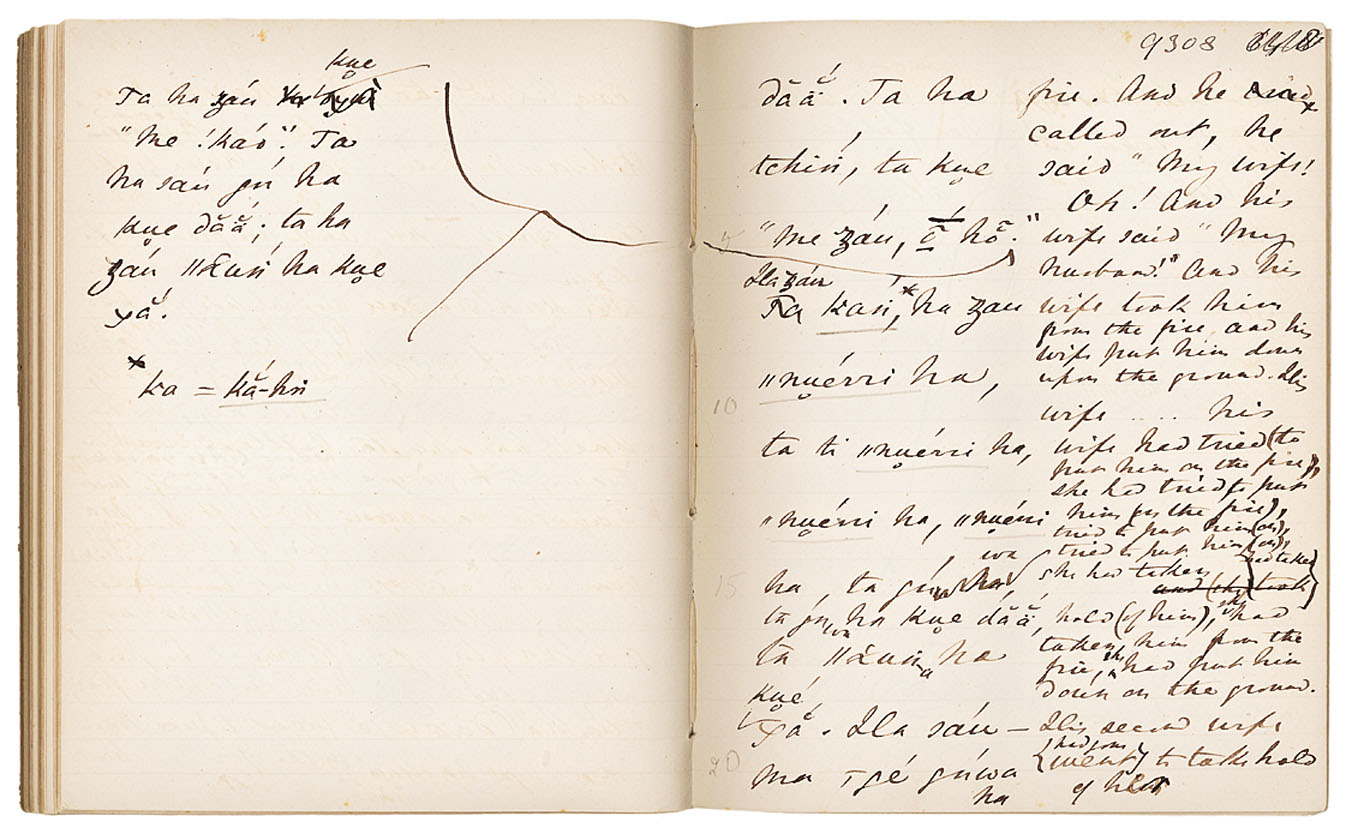 kue
Ta ha ʒáń
"Me !káo". Ta
ha sáń gú ha
kue dẵẵ; ta ha
ʒáń ǁʓuń ha kue
χẵ.
× ka = kẵ-hń
9308
dẵẵ. Ta ha
tchiń, ta kue
"Me ʒáń, ō hõ."
Ha ʒáń
Ta kań,× ha ʒáń
ǁnuérri ha,
ta ti ǁnuérri ha,
ǁnuérri ha, ǁnuérri
wa
ha, ta gú
ta gú wa ha kue dẵẵ,
ta ǁʓuń ha
kué
χẵ. Ha sáń –
ma ꞇgé gúwa
ha
fire. And he
called out, he
said "My wife!
Oh! And his
wife said "My
husband!" And his
wife took him
from the fire, and his
wife put him down
upon the ground. His
wife .... his
wife had tried (to
put him on the fire),
she had tried to put
him (on the fire),
tried to put him (on),
tried to put him (on),
she had taken
had taken
and (she) took
hold (of him), she had
taken him from the
fire, she had put him
down on the ground.
His second wife
had gone
{went} to take hold
of her
5
10
15
20